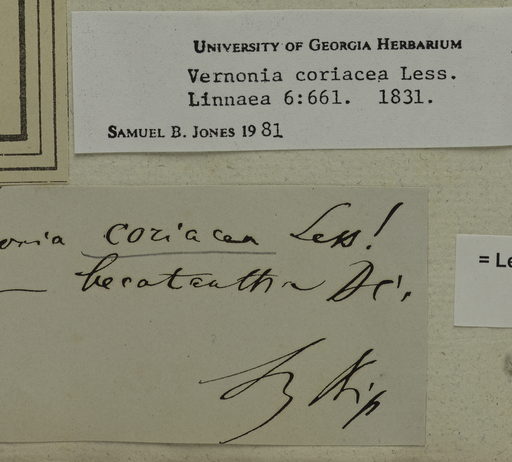 UNIVERSITY OF GEORGIA HERBARIUM
Vernonia coriacea Less.
Linnaea 6:661. 1831.
SAMUEL B. JONES 1981
onia coriacea Less!
DC.
= Le